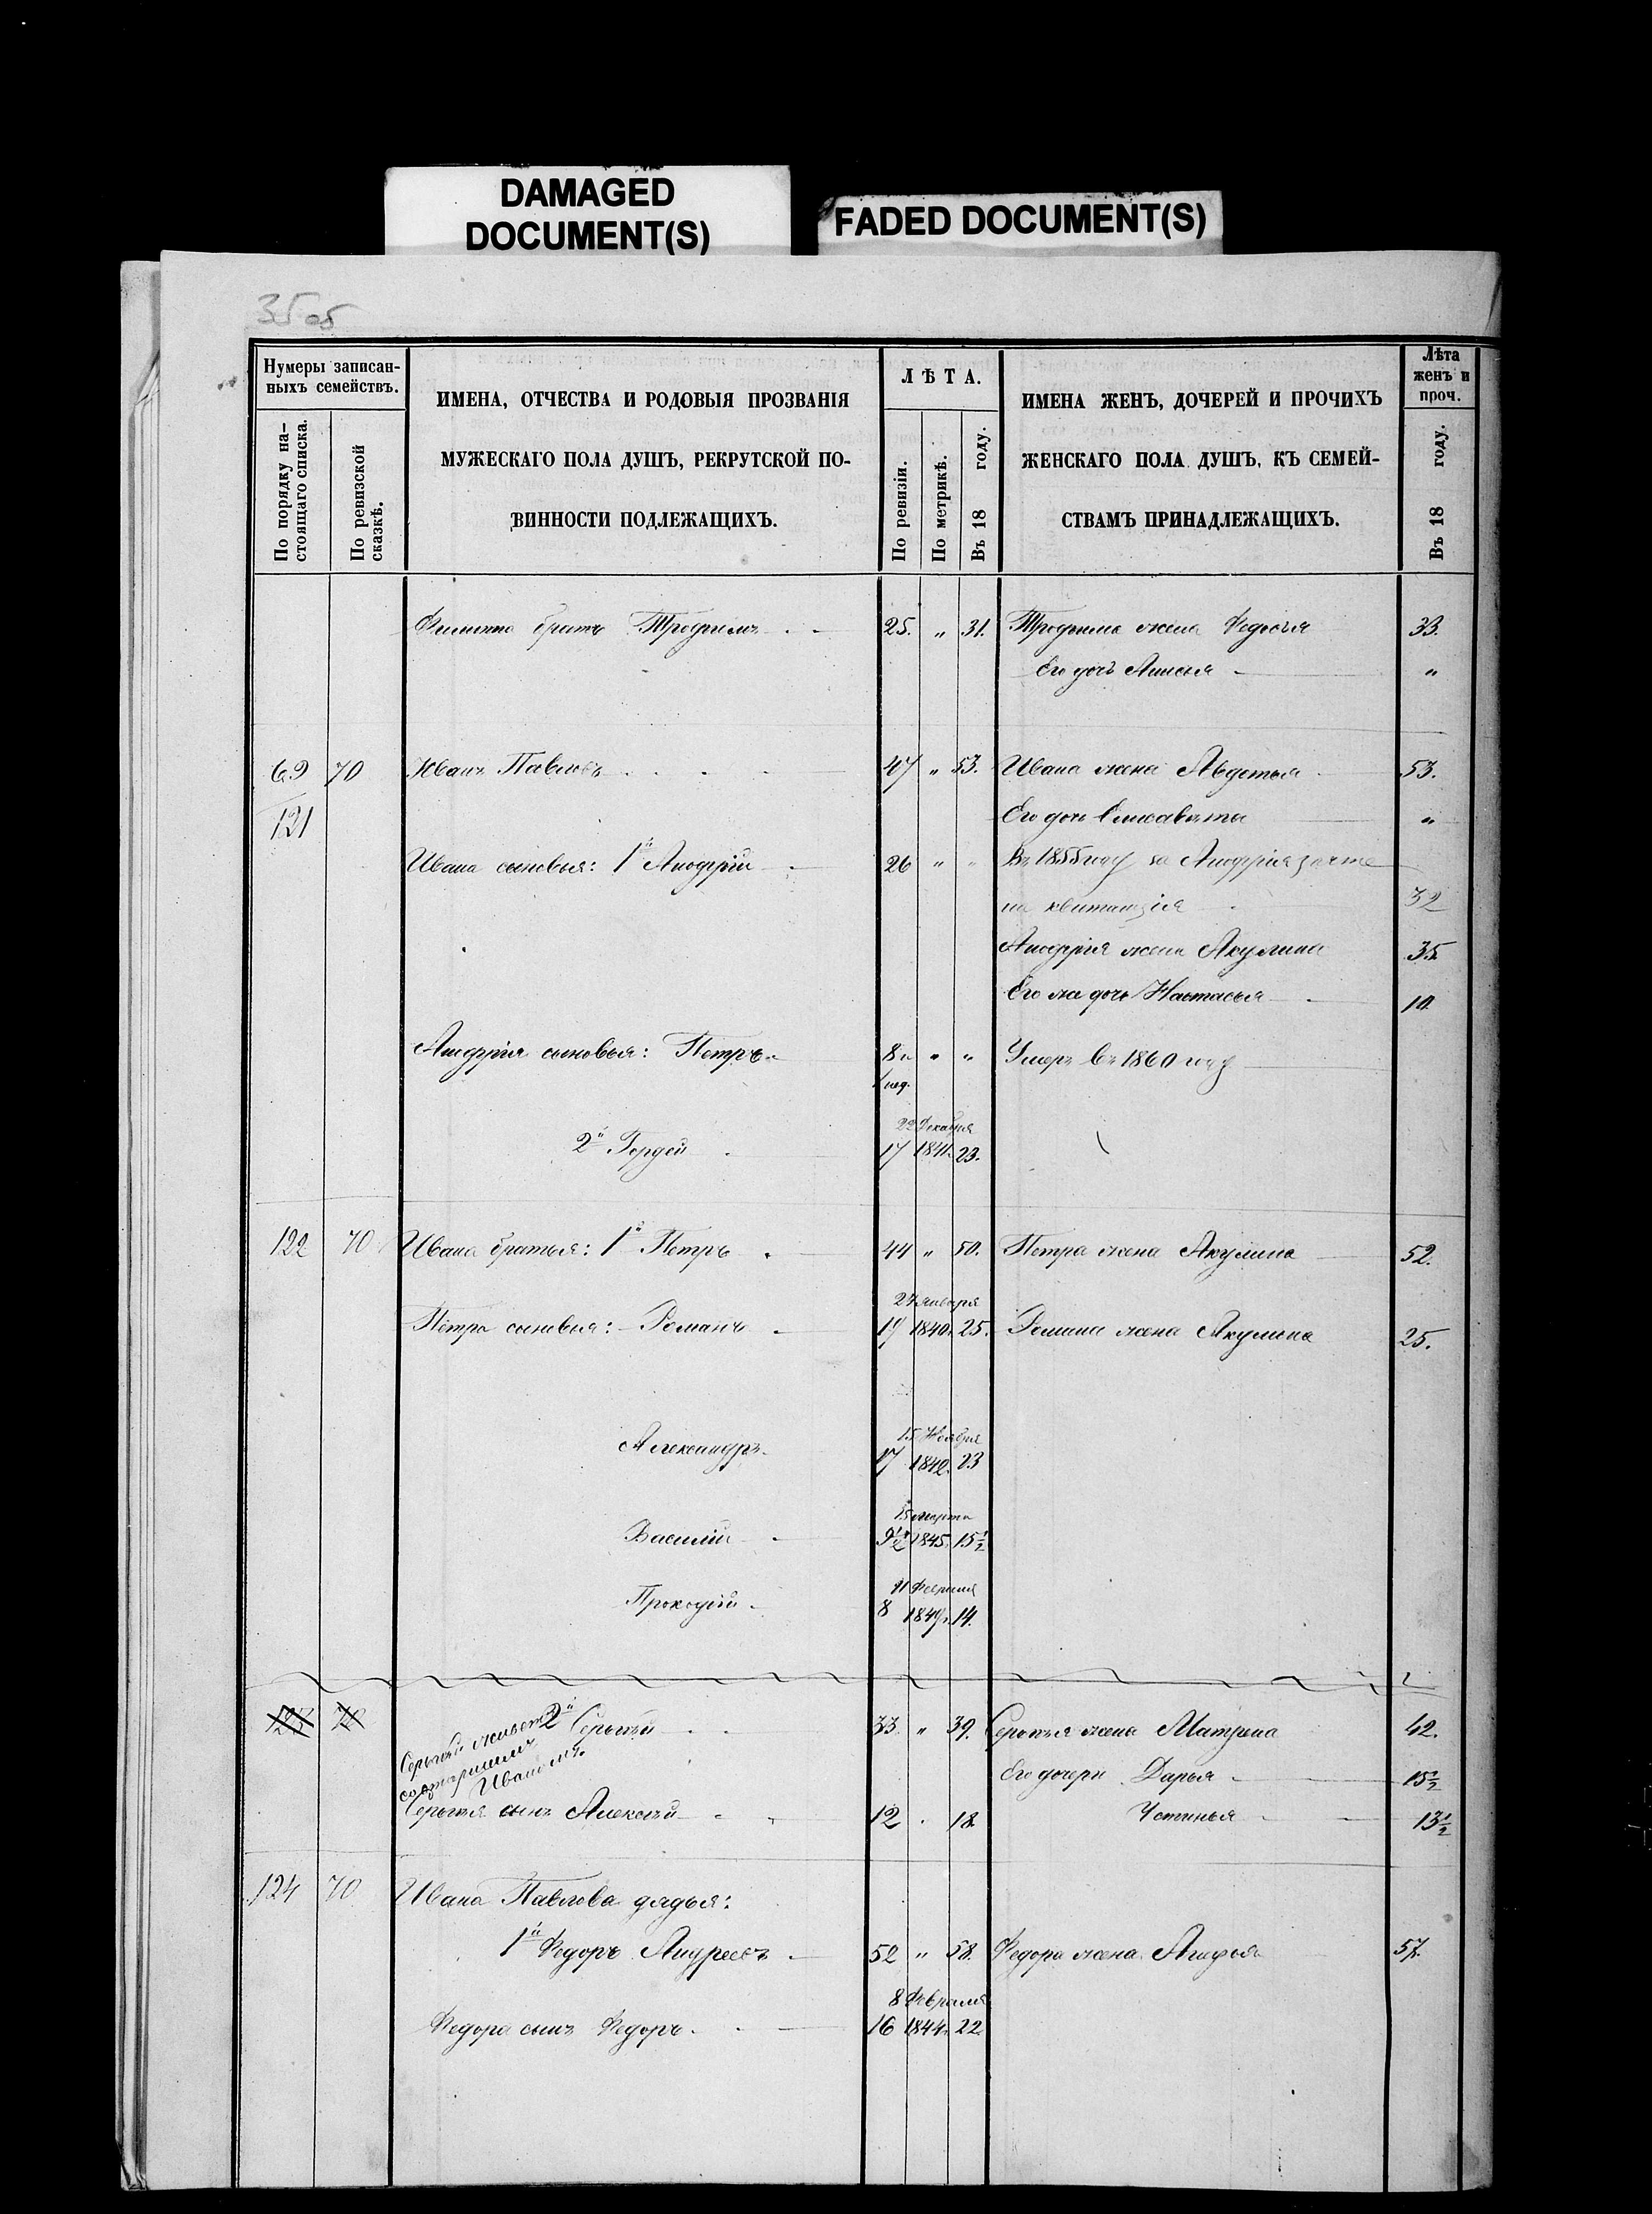 DAMAGED
DOCUMENT(S)
FADED DOCUMENT(S)
35 об
Нумеры записан-
ныхъ семействъ.
По порядку на-
стоящаго списка.
По ревизской
сказкѣ.
ИМЕНА, ОТЧЕСТВА И РОДОВЫЯ ПРОЗВАНІЯ
МУЖЕСКАГО ПОЛА ДУШЪ, РЕКРУТСКОЙ ПО-
ВИННОСТИ ПОДЛЕЖАЩИХЪ.
ЛѢТА.
По ревизіи.
По метрикѣ.
Въ 18 году.
ИМЕНА ЖЕНЪ, ДОЧЕРЕЙ И ПРОЧИХЪ
ЖЕНСКАГО ПОЛА ДУШЪ, КЪ СЕМЕЙ-
СТВАМЪ ПРИНАДЛЕЖАЩИХЪ.
Лѣта
женъ и
проч.
Въ 18 году.
братъ Трофимъ 25. " 31. Трофима жена Федосья 33.
Его дочь Анисья "
69 70 Иванъ Павловъ 47 " 53. Ивана жена Авдотья 53.
121 Его дочь Елисавета "
Ивана сыновья: 1й Анофрій 26 " " Въ 1855 году за Анофрія зачте
на квитанція 32
Анофрія жена Акулина 35
Его же дочь Настасья 10
Анофрія сыновья: Петръ 8 и " " Умеръ въ 1860 году
1 нед.
22 Декабря
2й Гордей 17 1841 23.
122 70 Ивана братья: 1й Петръ 44 " 50. Петра жена Акулина 52.
27 Января
Петра сыновья: Романъ 19 1840 25. Романа жена Акулина 25.
15 Ноября
Александръ 17 1842 23
15 марта
Василій 9½ 1845 15½
11 Февраля
Прокофій 8 1847 14.
123 70 2й Сергѣй 33 " 39. Сергѣя жена Матрена 42.
Сергѣй живетъ
со старшимъ
Иваномъ.
Его дочери Дарья 15½
Сергѣя сынъ Алексѣй 12 18 Устинья 13½
124 70 Ивана Павлова дядья:
1й Федоръ Андреевъ 52 " 58. Федора жена Агафья 57.
8 Февраля
Федора сынъ Федоръ 16 1844 22